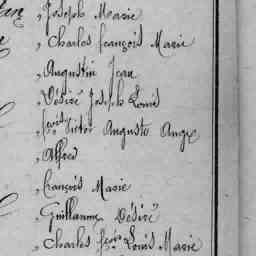 , Joseph Marie
, Charles françois Marie
, Augustin Jean
, Désiré Joseph Louis
, fçois Victor Auguste Ange
, Alfred
, françois Marie
, Guillaume Désiré
, Charles fçois Louis Marie